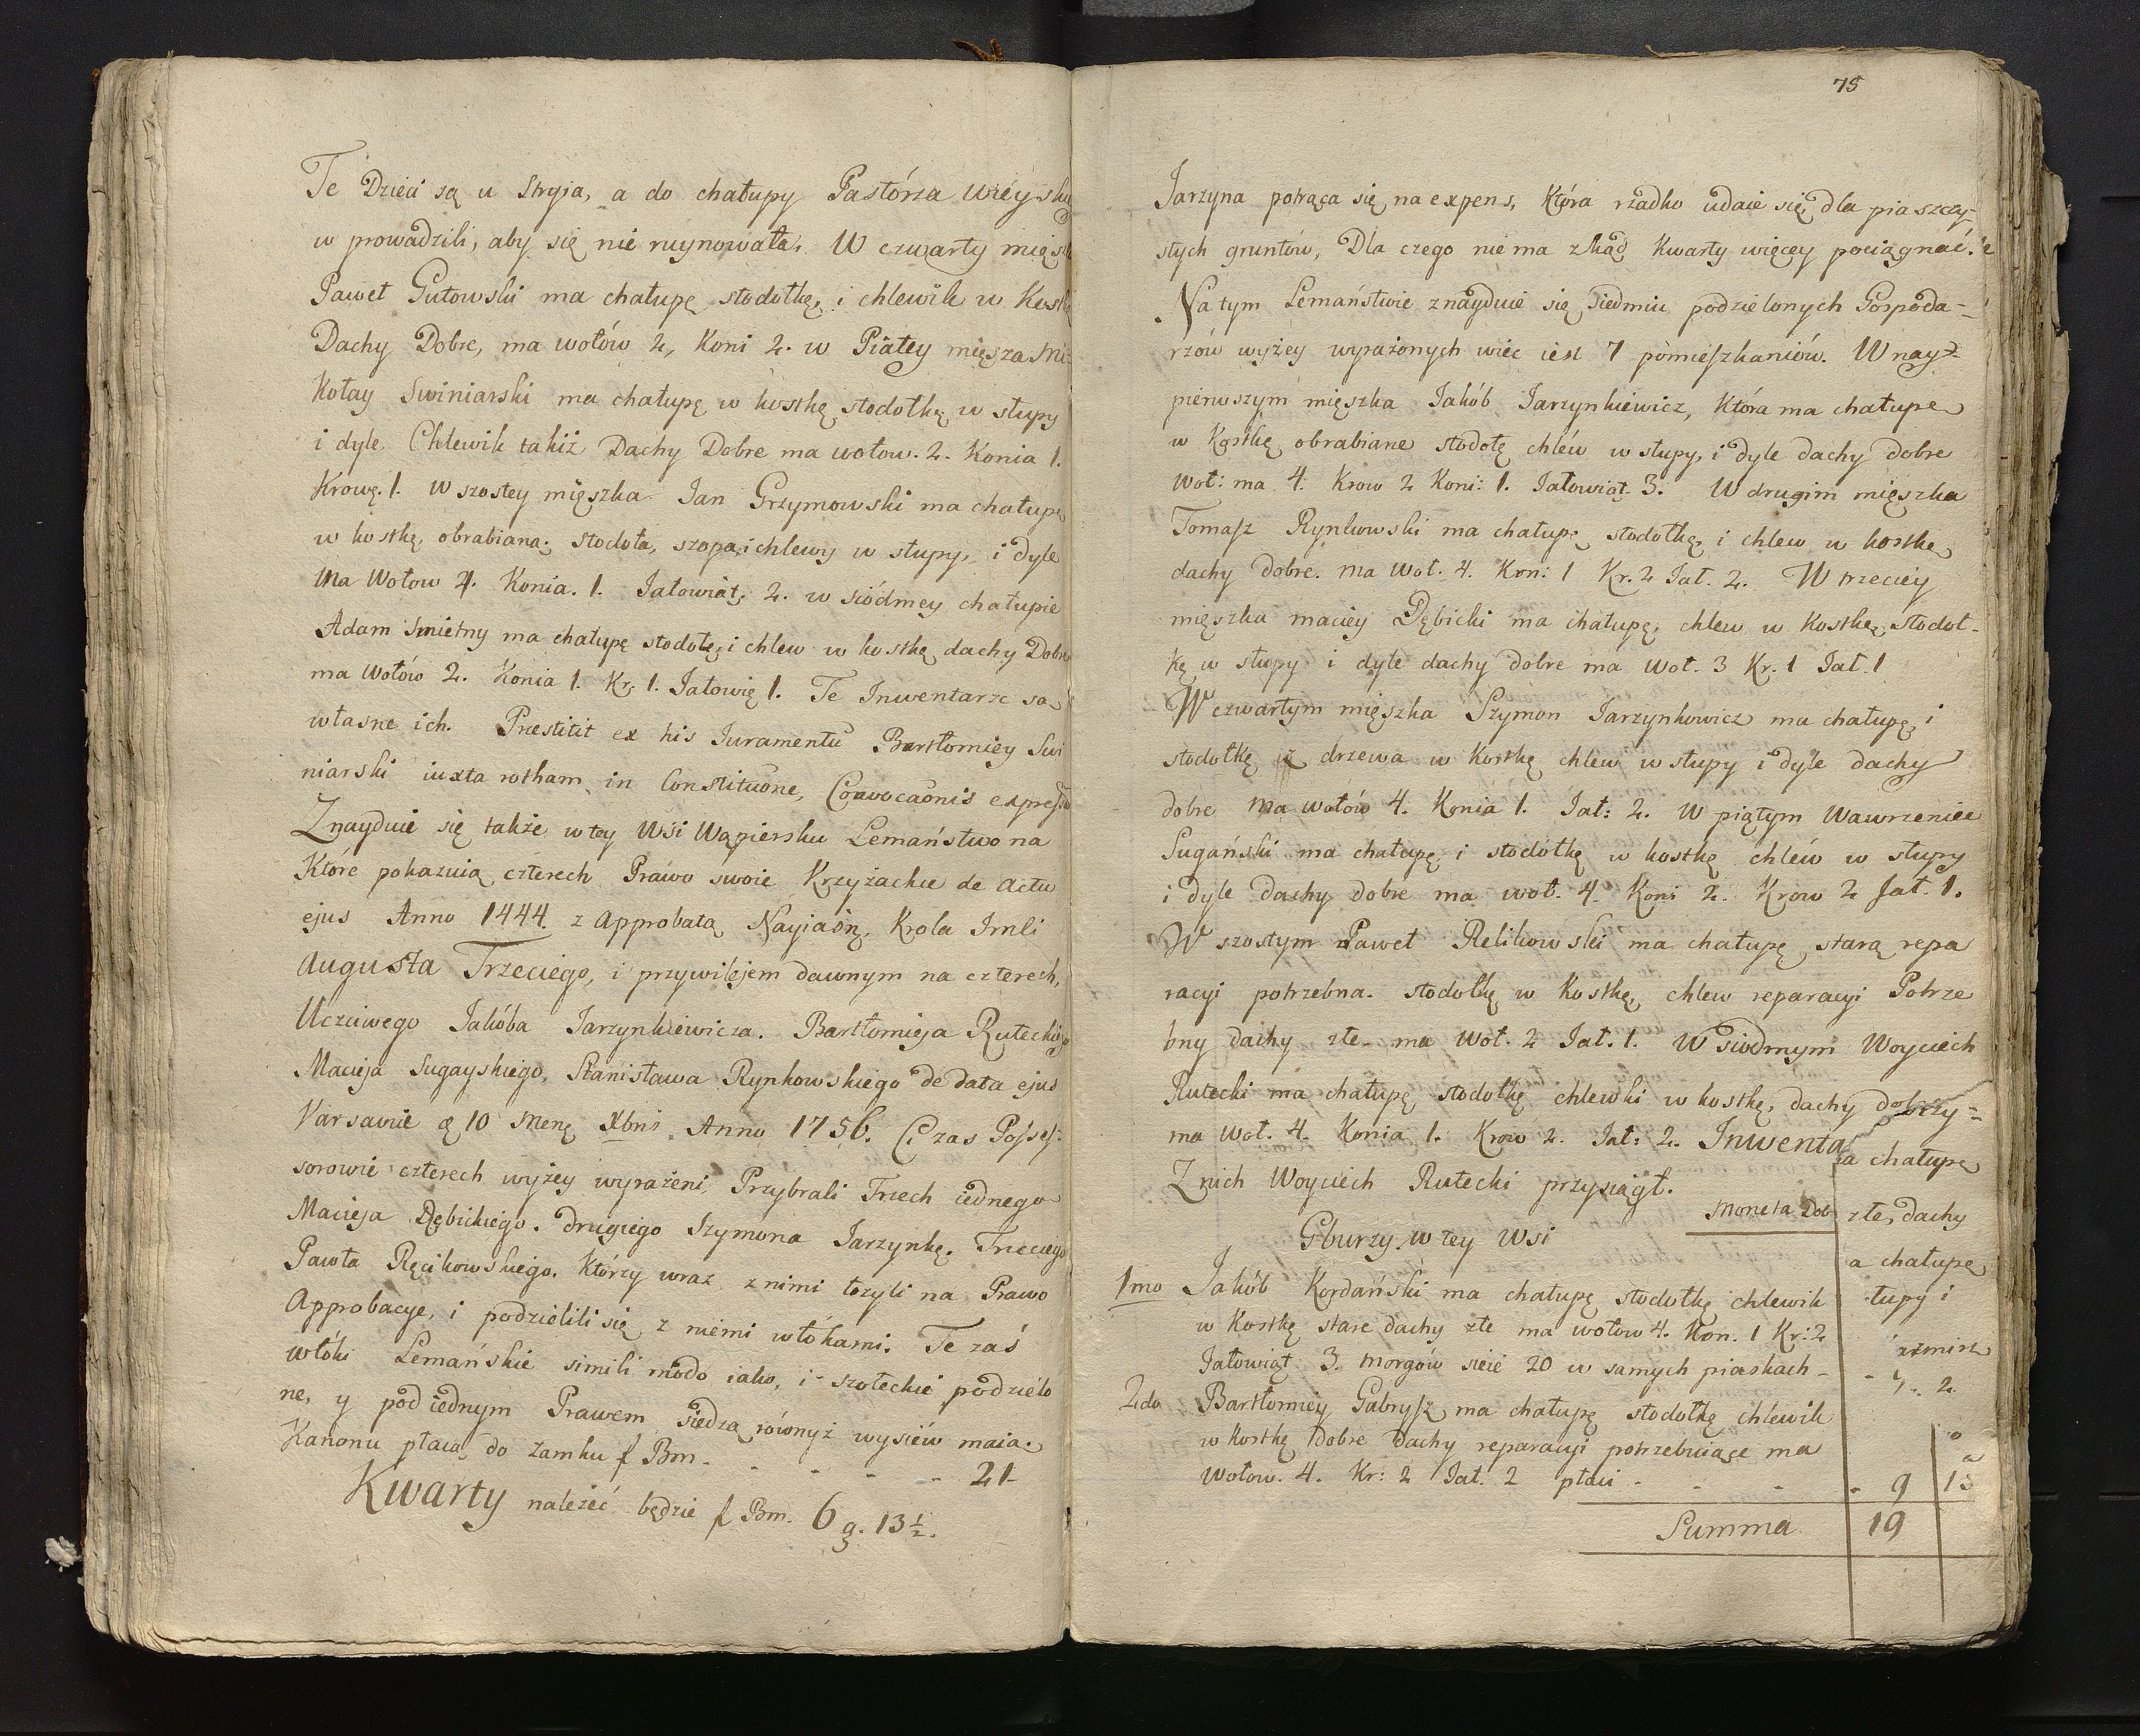 Te Dzieci są u Stryja, a do chałupy Pastórza wieysk
w prowadzili, aby się nie ruynowała. W czwarty mięsz
Paweł Gutowski ma chałupę stodołkę, i chlewik w Kostk
Dachy Dobre, ma wołów 2, Koni 2. w Piątey mięsza Mi-
kołay Swiniarski ma chałupę w kostkę stodołkę w słupy
i dyle Chlewik takiż Dachy Dobre ma wołow. 2. Konia 1.
Krowę. 1. w szostey mięszka Jan Grzymowski ma chałupę
w kostkę obrabianą; stodoła, szopa, i chlewy w słupy, i dyle
Ma Wołow 4. Konia. 1. Jałowiąt. 2. w siódmey chałupie
Adam Smietny ma chałupę stodołę, i chlew w kostkę dachy Dobre
ma Wołów 2. Konia 1. Kr. 1. Jałowię 1. Te Inwentarze są
własne ich. Præstitit ex his Juramentū Bartłomiey Swi
niarski iuxta rotham in Constitutōne, Convocaōnis express
Znayduie się także w tey Wsi Wąpiersku Lemaństwo na
Które pokazuią czterech Prawo swoie Krzyżackie de actu
ejus Anno 1444. z Approbatą Nayiaśn. Krola Jmći
Augusta Trzeciego, i przywilejem dawnym na czterech,
Uczciwego Jakóba Jarzynkiewicza. Bartłomieja Ruteckiego
Macieja Sugayskiego, Stanisława Rynkowskiego de data ejus
Varsaviæ d. 10 Mens. Xbris Anno 1756. Ci zas Posses-
sorowie czterech wyżey wyrażeni, Przybrali Trzech iednego
Macieja Dębickiego. drugiego Szymona Jarzynkę. Trzeciego
Pawła Ręcikowskiego. Którzy wraz z nimi łozyli na Prawo
Approbacye, i podzielili się z niemi włókami. Te zaś
włóki Lemańskie simili modo iako, i szołeckie podzielo
ne, y pod iednym Prawem siedzą rownyż wysiéw maią.
Kanonu płacą do Zamku f Bm. - - - - - 21-
Kwarty należeć będzie f Bm. 6 g. 13½.
75
Jarzyna potrąca się na expens, Która rzadko udaie się dla piaszczy-
stych gruntów, Dla czego nie ma zkąd Kwarty więcey pociągnąć.
Na tym Lemaństwie znayduie się siedmiu podzielonych Gospoda-
rzów wyżey wyrażonych więc iest 7 pomieszkaniów. W nay-
pierwszym mięszka Jakób Jarzynkiewicz, Która ma chałupę
w Kostkę obrabiane stodołę chléw w słupy, i dyle dachy dobre
Woł: ma 4. Krow 2 Koni: 1. Jałowiąt. 3. W drugim mięszka
Tomasz Rynkowski ma chałupę stodołkę i chlew w kostkę
dachy dobre. ma Woł. 4. Kon: 1 Kr. 2 Jał. 2. W trzeciey
mięszka maciey Dębicki ma chałupę, chlew w Kostkę, stodoł-
kę w słupy i dyle dachy dobre ma Woł. 3 Kr. 1 Jał. 1
W czwartym mięszka Szymon Jarzynkowicz ma chałupę, i
stodołkę z drzewa w Kostkę chlew w słupy i dyle dachy
dobre ma wołów 4. Konia 1. Jał: 2. W piątym Wawrzeniec
Sugański ma chałupę i stodołkę w kostkę chléw w słupy
i dyle dachy dobre ma woł. 4. Koni 2. Krow 2 Jał. 1.
W szostym Paweł Relikowski ma chałupę starą repa
racyi potrzebna. stodołkę w Kostkę, chlew reparacyi Potrze
bny dachy złe- ma Woł. 2 Jał. 1. W siodmym Woyciech
Rutecki ma chałupę stodołkę chlewki w kostkę, dachy dobrzy-
ma woł. 4. Konia 1. Krow 2. Jał: 2. Inwenta
Z nich Woyciech Rutecki przysiągł.
a chałupę
Moneta Dob
złe, dachy
Gburzy w tey Wsi
a chałupę
1mo Jakób Kordański ma chałupę stodołkę chlewik
łupy i
w Kostkę stare dachy złe ma wołow 4. Kon. 1 Kr: 2
Jałowiąt 3. morgów sieie 20 w samych piaskach -
2.
2do Bartłomiey Gabrysz ma chałupę stodołkę chlewik
w kostkę dobre dachy reparacyi potrzebuiące ma
Wołow. 4. Kr: 2 Jał. 2 płaci - - - - 9 15
Summa 19